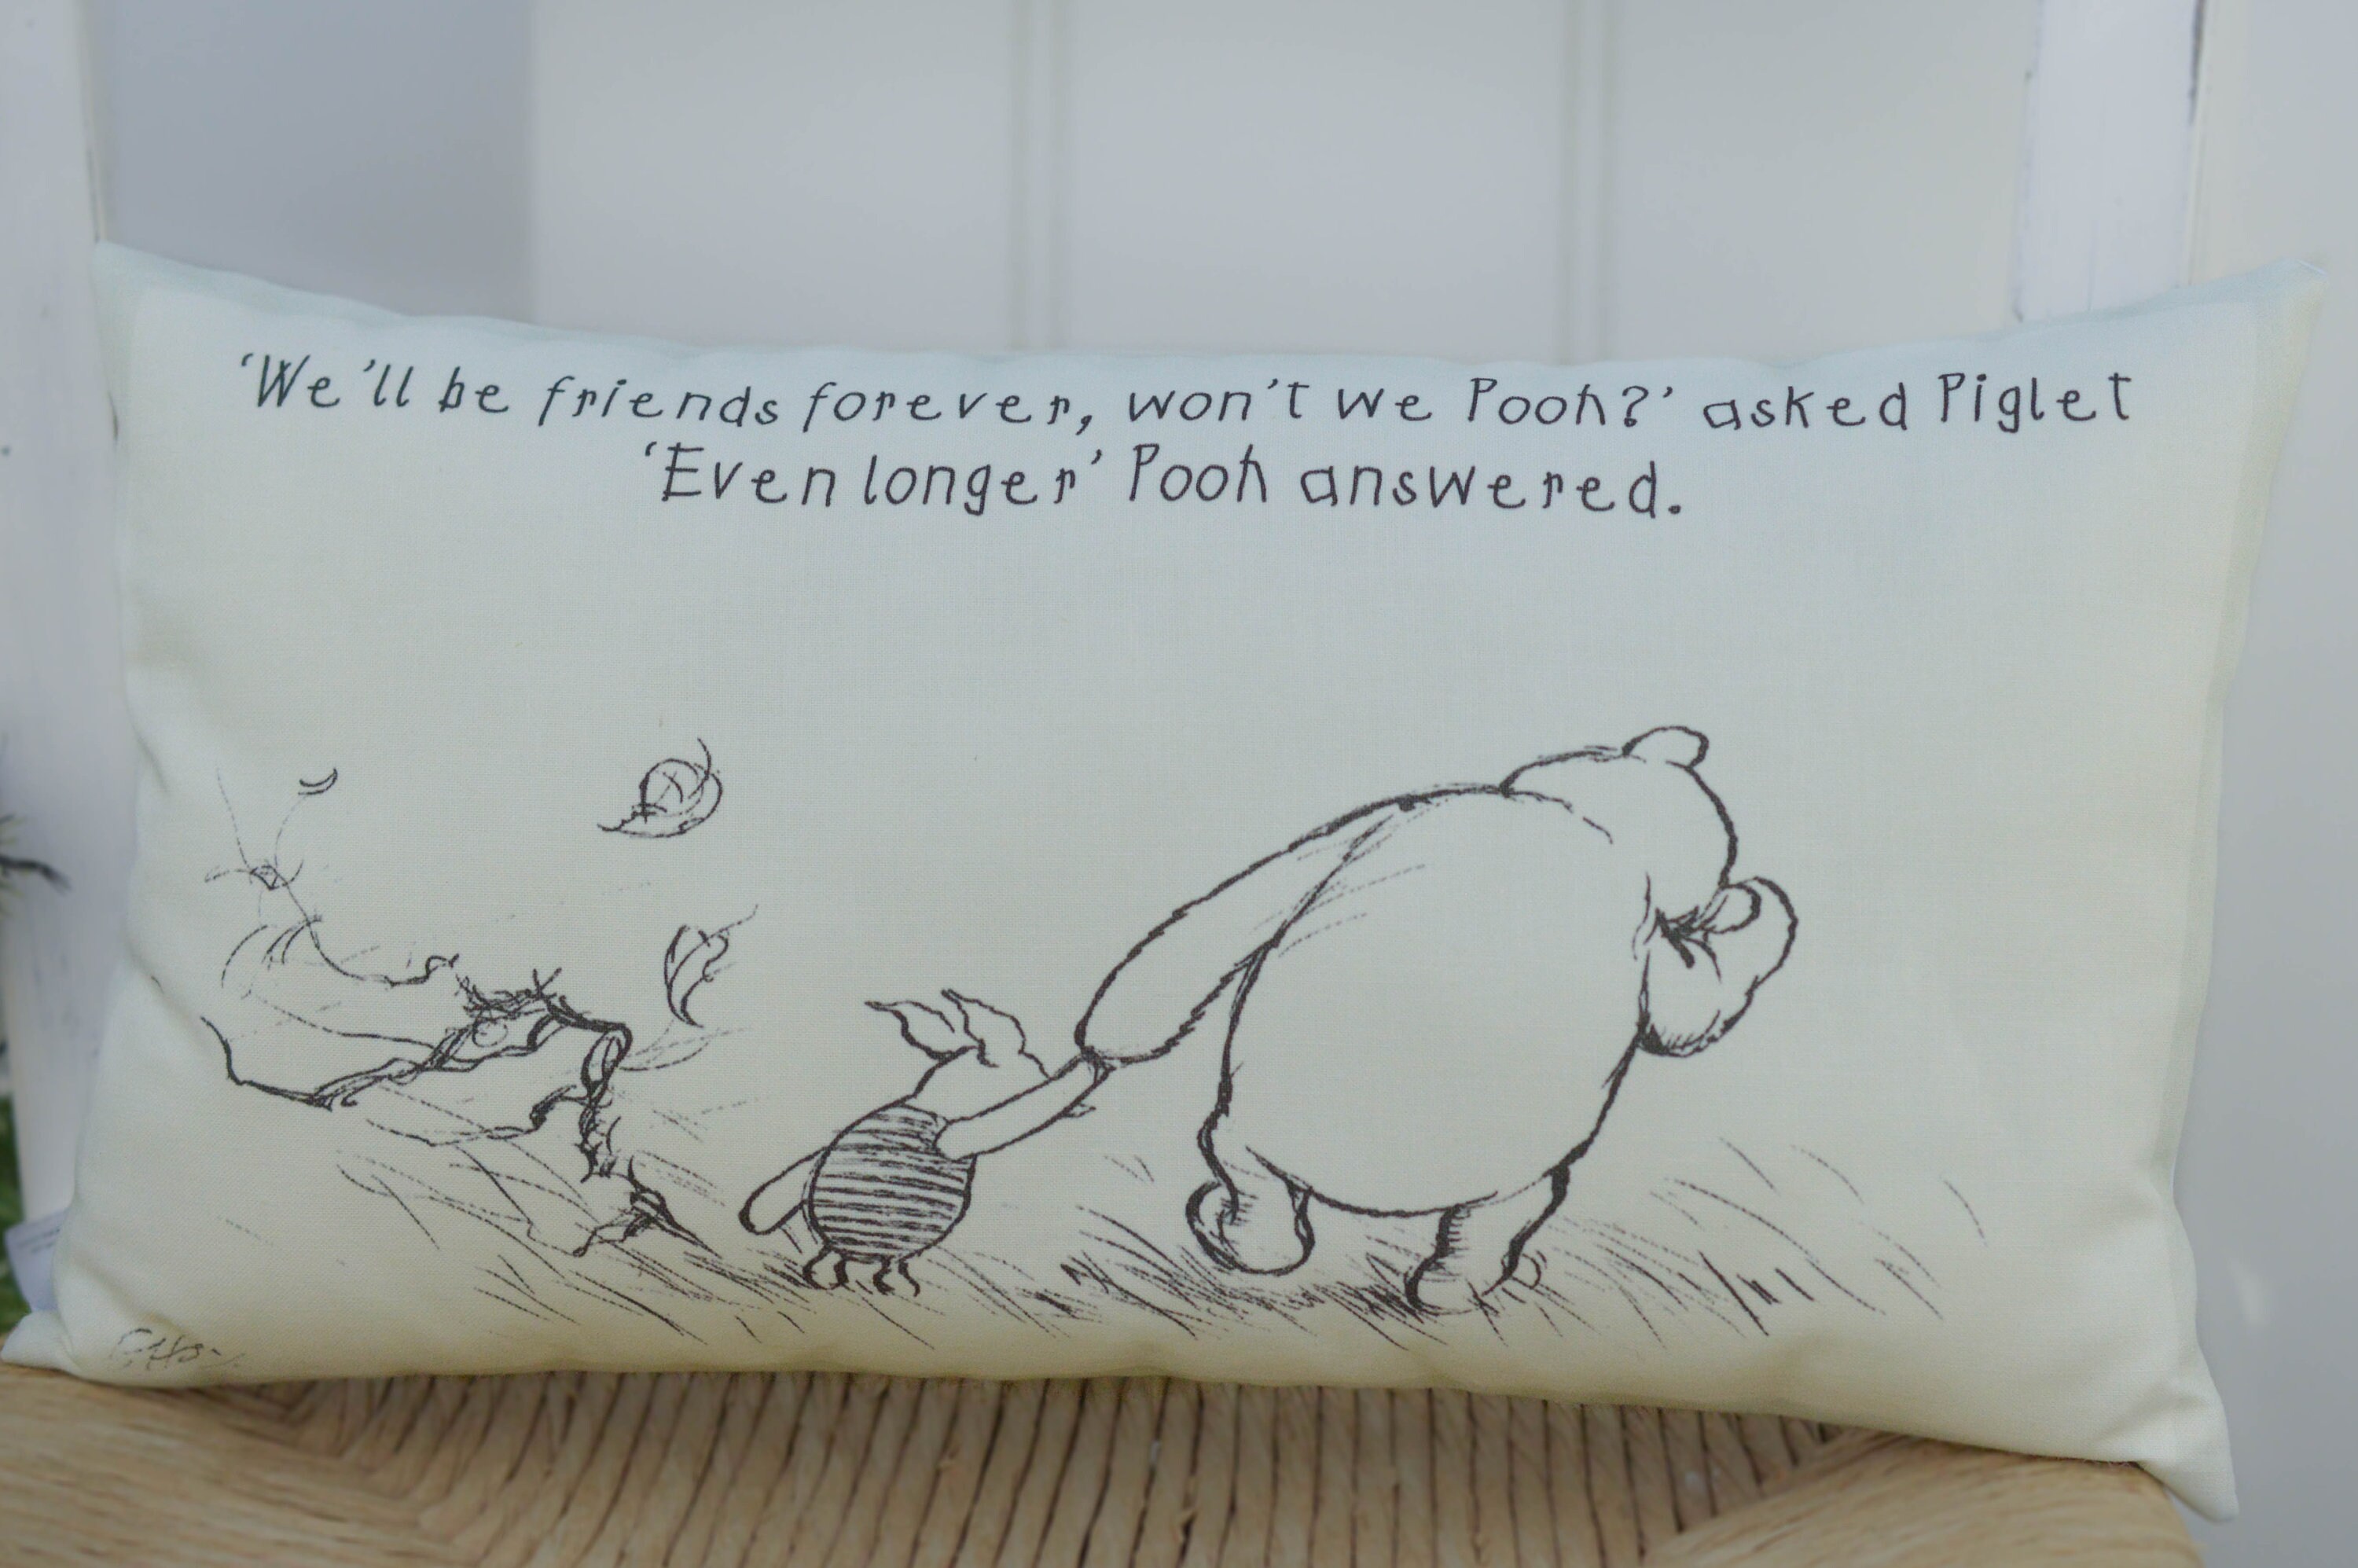 ‘We’ll be friends forever, won’t we Pooh?’ asked Piglet
‘Even longer’ Pooh answered.